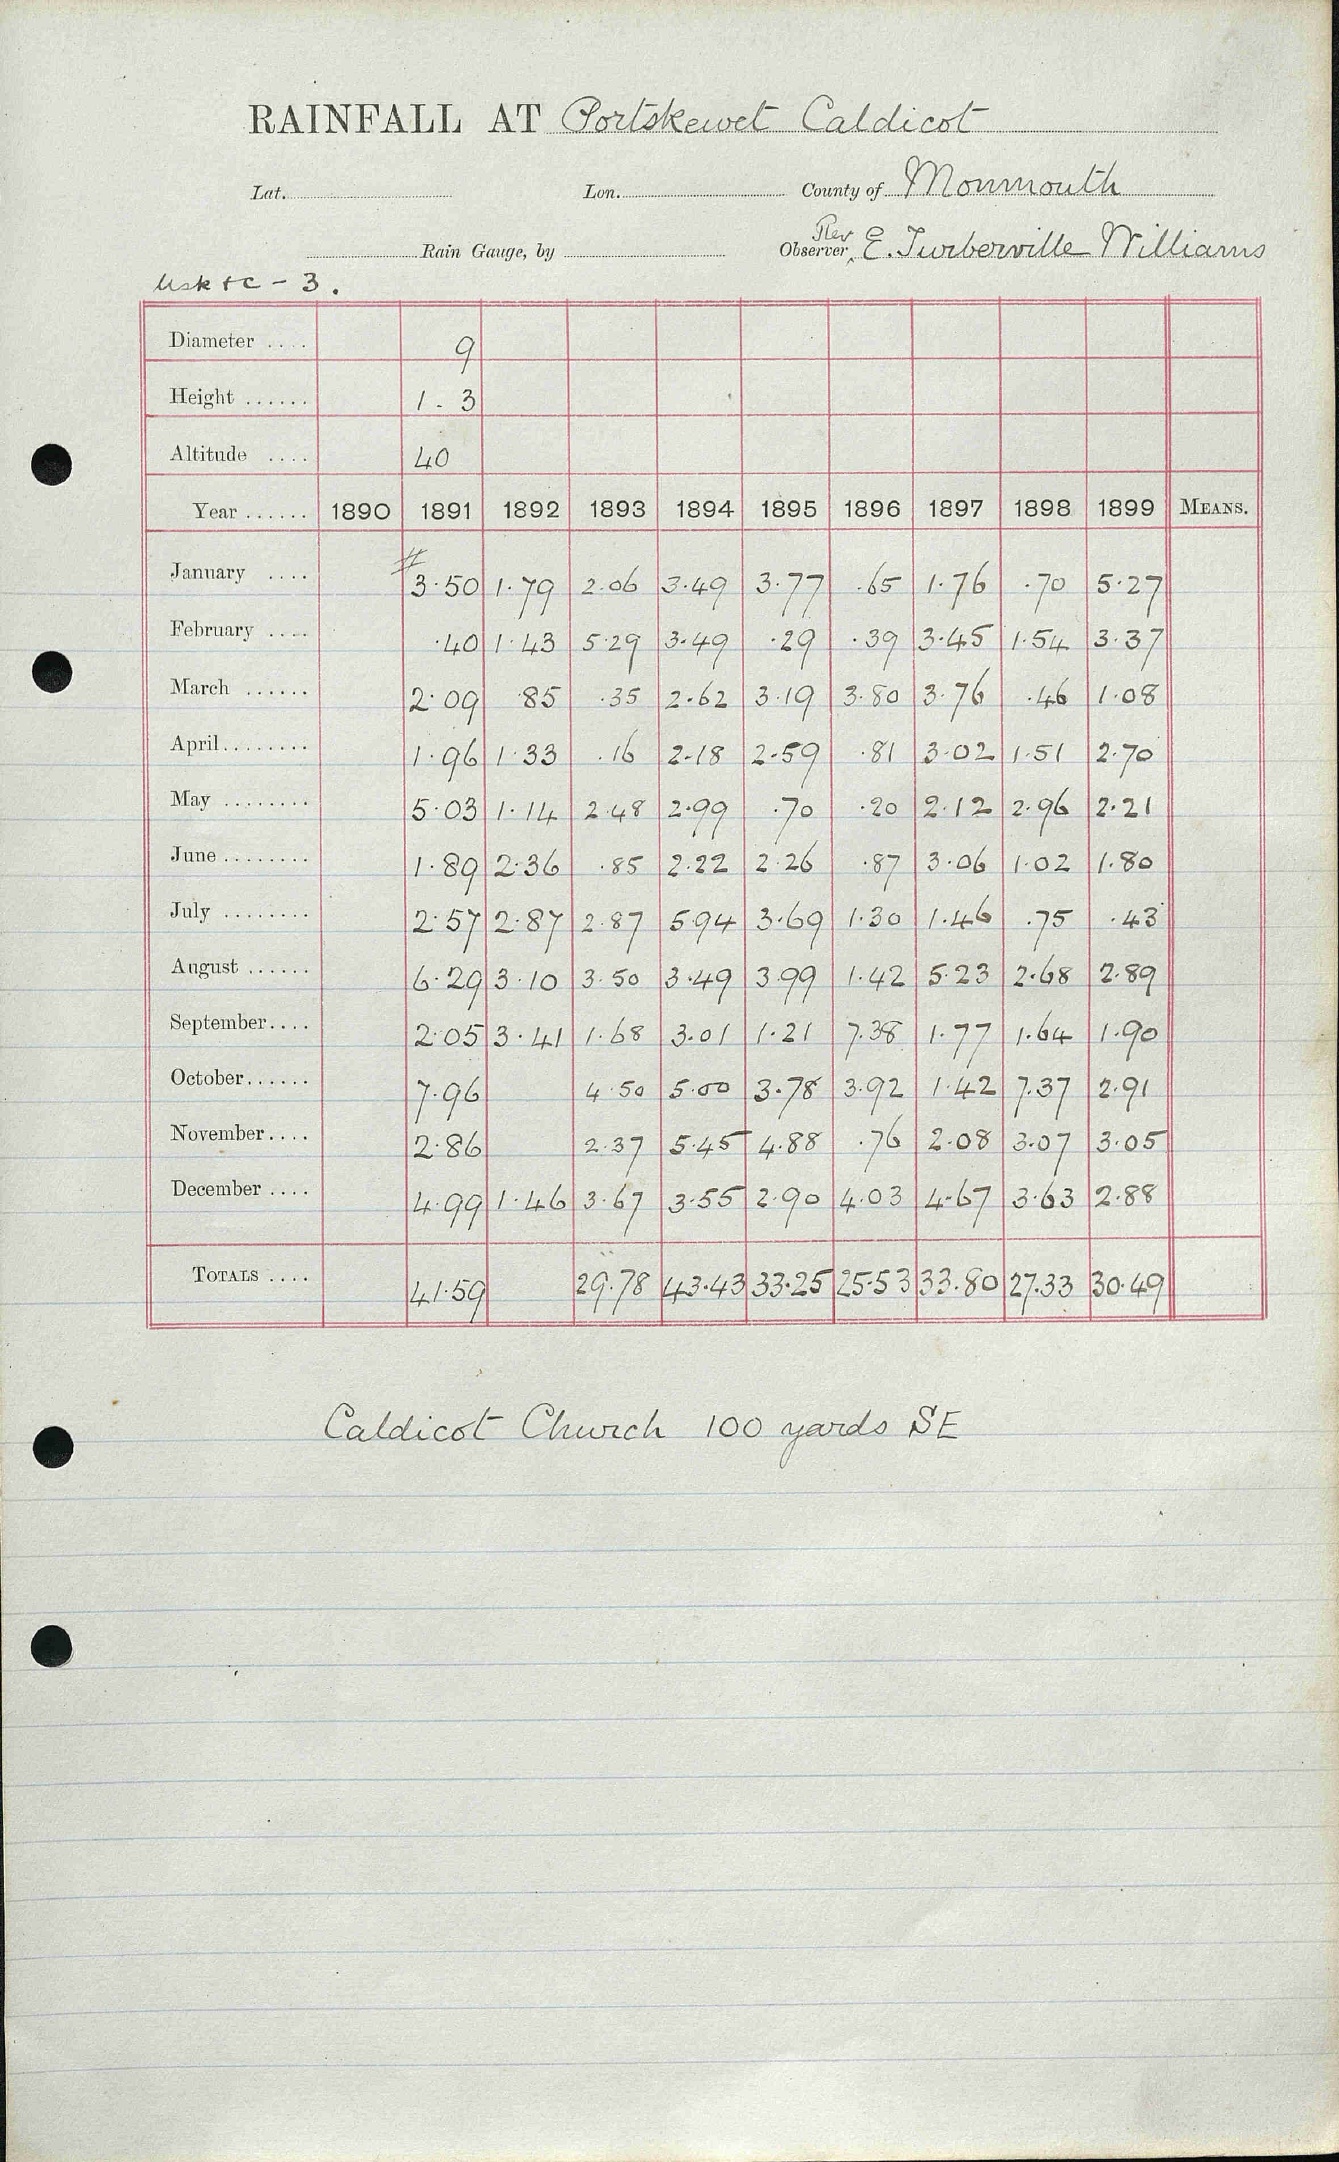 RAINFALL AT Portskewet Caldicot
Lat. Lon. County of Monmouth
Rain Gauge, by Observer, Rev E. Turberville Williams
Usk + C - 3.
Diameter .... 9
Height ...... 1 - 3
Altitude .... 40
Year ...... 1890 1891 1892 1893 1894 1895 1896 1897 1898 1899 MEANS.
January .... # 3.50 1.79 2.06 3.49 3.77 .65 1.76 .70 5.27
February .... .40 1.43 5.29 3.49 .29 .39 3.45 1.54 3.37
March ...... 2.09 .85 .35 2.62 3.19 3.80 3.76 .46 1.08
April........ 1.96 1.33 .16 2.18 2.59 .81 3.02 1.51 2.70
May ........ 5.03 1.14 2.48 2.99 .70 .20 2.12 2.96 2.21
June ........ 1.89 2.36 .85 2.22 2.26 .87 3.06 1.02 1.80
July ........ 2.57 2.87 2.87 5.94 3.69 1.30 1.46 .75 .43
August ...... 6.29 3.10 3.50 3.49 3.99 1.42 5.23 2.68 2.89
September.... 2.05 3.41 1.68 3.01 1.21 7.38 1.77 1.64 1.90
October...... 7.96 4.50 5.00 3.78 3.92 1.42 7.37 2.91
November.... 2.86 2.37 5.45 4.88 .76 2.08 3.07 3.05
December .... 4.99 1.46 3.67 3.55 2.90 4.03 4.67 3.63 2.88
TOTALS .... 41.59 29.78 43.43 33.25 25.53 33.80 27.33 30.49
Caldicot Church 100 yards SE